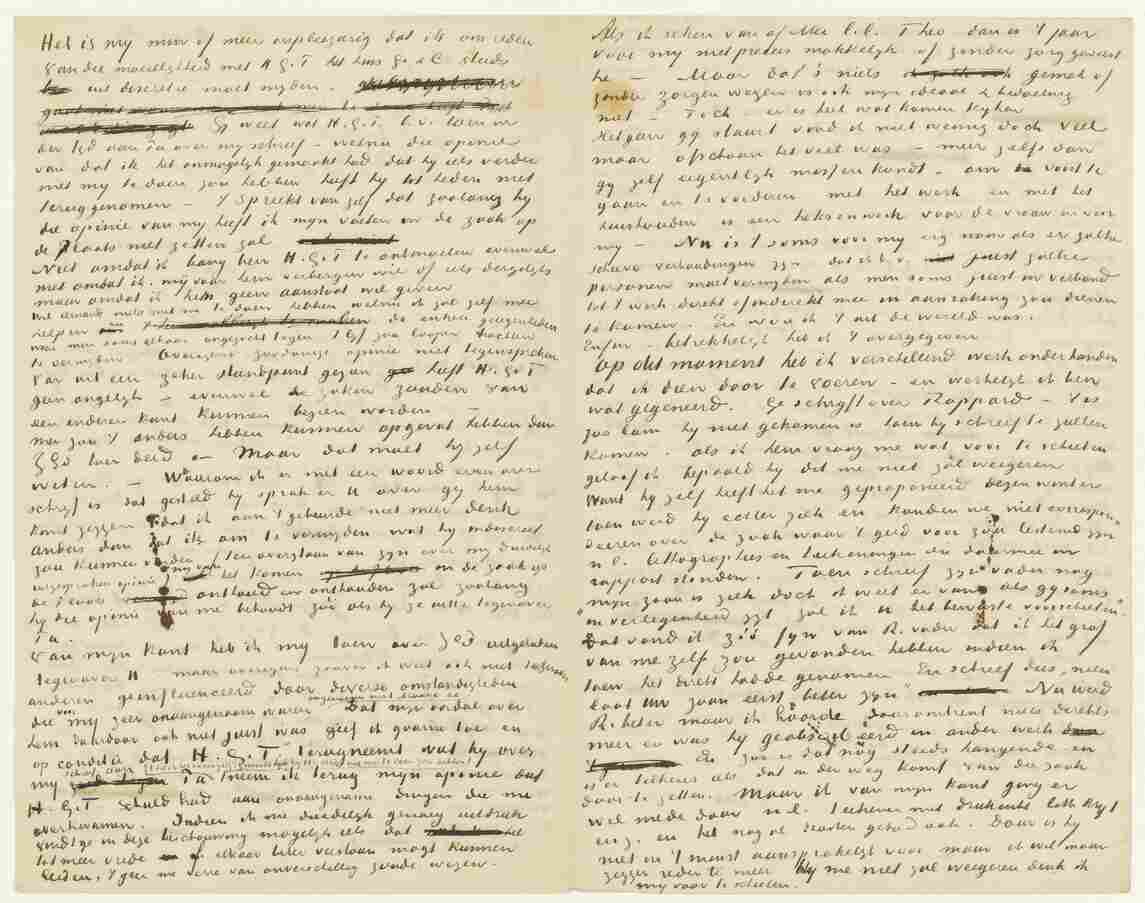 Het is my min of meer onpleizierig dat ik om reden
van die moeielykheid met H.G.T. het huis G. & C. steeds
uit discretie moet myden.
Gy weet wat H.G.T. b.v. toen in
der tyd aan Pa over my schreef – welnu die opinie
van dat ik het onmogelyk gemaakt had dat hy iets verder
met my te doen zou hebben heeft hy tot heden niet
teruggenomen – 't Spreekt van zelf dat zoolang hy
die opinie van my heeft ik mijn voeten in de zaak op
de Plaats niet zetten zal
Niet omdat ik bang ben H.G.T. te ontmoeten evenmin
niet omdat ik my voor hem verbergen wil of iets dergelyks
maar omdat ik hem geen aanstoot wil geven
Wil iemand niets met me te doen hebben welnu ik zal zelf mee
helpen de enkele gelegenheden
waar men soms elkaar ongezocht tegen 't lyf zou loopen trachten
te vermyden. Overigens zoodanige opinie niet tegensprekend
Van uit een zeker standpunt gezien heeft H.G.T
geen ongelyk – evenwel de zaken zouden van
een anderen kant kunnen bezien worden –
men zou 't anders hebben kunnen opgevat hebben dan
ZEd toen deed – Maar dat moet hy zelf
weten. – Waarom ik er met een woord even over
schryf is dat gesteld hy sprak er U over gy hem
kunt zeggen dat ik aan 't gebeurde niet meer denk
anders dan dat ik om te vermyden wat hy indiscreet
zou kunnen vinden ten overstaan van zyn over my duidelyk
uitgesproken opinie my van het komen in de zaak op
de Plaats onthoud en onthouden zal zoolang
hy die opinie van me behoudt zoo als hy ze uitte tegenover
Pa.
Van mijn kant heb ik my toen over ZEd uitgelaten
tegenover U maar overigens zoover ik weet ook niet tegenover
anderen geinfluenceerd door diverse omstandigheden
die my zeer onaangenaam waren dat mijn oordeel over
hem daardoor ook niet juist was geef ik gaarne toe en
op conditie dat H.G.T. terugneemt wat hy over
my schreef aan Pa neem ik terug mijn opinie dat
H.G.T schuld had aan onaangename dingen die me
overkwamen. Indien ik me duidelyk genoeg uitdruk
vindt ge in deze beschouwing mogelyk iets dat het
tot meer vrede of elkaar beter verstaan mogt kunnen
leiden, 't geen me verre van onverschillig zoude wezen.
Als ik reken van af Mei l.l. Theo dan is 't jaar
voor my niet precies makkelyk of zonder zorg geweest
he – Maar dat 's niets gemak of
zonder zorgen wezen is ook mijn ideaal & bedoeling
niet – Toch – er is heel wat komen kyken
Hetgeen gy stuurt vond ik niet weinig doch veel
maar ofschoon het veel was – meer zelfs dan
gy zelf eigentlyk missen kondt – om voort te
gaan en te vorderen met het werk en met het
huishouden is een heksenwerk voor de vrouw en voor
my – Nu is 't soms voor my erg naar als er zulke
scheve verhoudingen zyn dat ik b.v. juist zulke
personen moet vermyden als men soms juist in verband
tot 't werk direkt of indirekt mee in aanraking zou dienen
te komen. En wou ik 't uit de wereld was.
Enfin – betrekkelyk heb ik 't overgegeven
Op dit moment heb ik verscheidend werk onderhanden
dat ik dien door te voeren – en werkelyk ik ben
wat gegeneerd. Ge schryft over Rappard – Yes
zoo lam hy niet gekomen is toen hy schreef te zullen
komen. als ik hem vraag me wat voor te schieten
geloof ik bepaald hy dit me niet zal weigeren
Want hy zelf heeft het me geproponeerd dezen winter
toen werd hy echter ziek en konden we niet correspon-
deeren over de zaak waar 't geld voor zou bestemd zyn
n.l. lithographies en teekeningen die daarmee in
rapport stonden. Toen schreef zyn vader nog
"mijn zoon is ziek doch ik weet er van als gy soms"
"in verlegenheid zyt zal ik U het bewuste voorschieten."
Dat vond ik zóó fyn van R. vader dat ik het grof
van me zelf zou gevonden hebben indien ik
toen het direkt hadde genomen En schreef dus, neen
laat uw zoon eerst beter zyn. Nu werd
R. beter maar ik hoorde daaromtrent niets direkts
meer en was hy geabsorbeerd in ander werk
En zoo is dat nog steeds hangende en
is er telkens als dat in den weg komt van die zaak
door te zetten. Maar ik van mijn kant ging er
wel mede door n.l. teekenen met drukinkt lith. kryt
enz. en het nog al kosten gehad ook. Daar is hy
niet in 't minst aansprakelyk voor maar ik wil maar
zeggen reden te meer hy me niet zal weigeren denk ik
my voor te schieten.